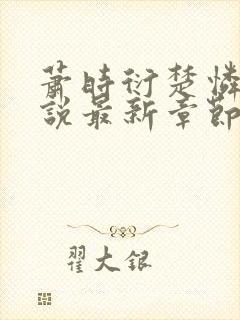 萧時衍楚憐
說最新章節
翟大銀